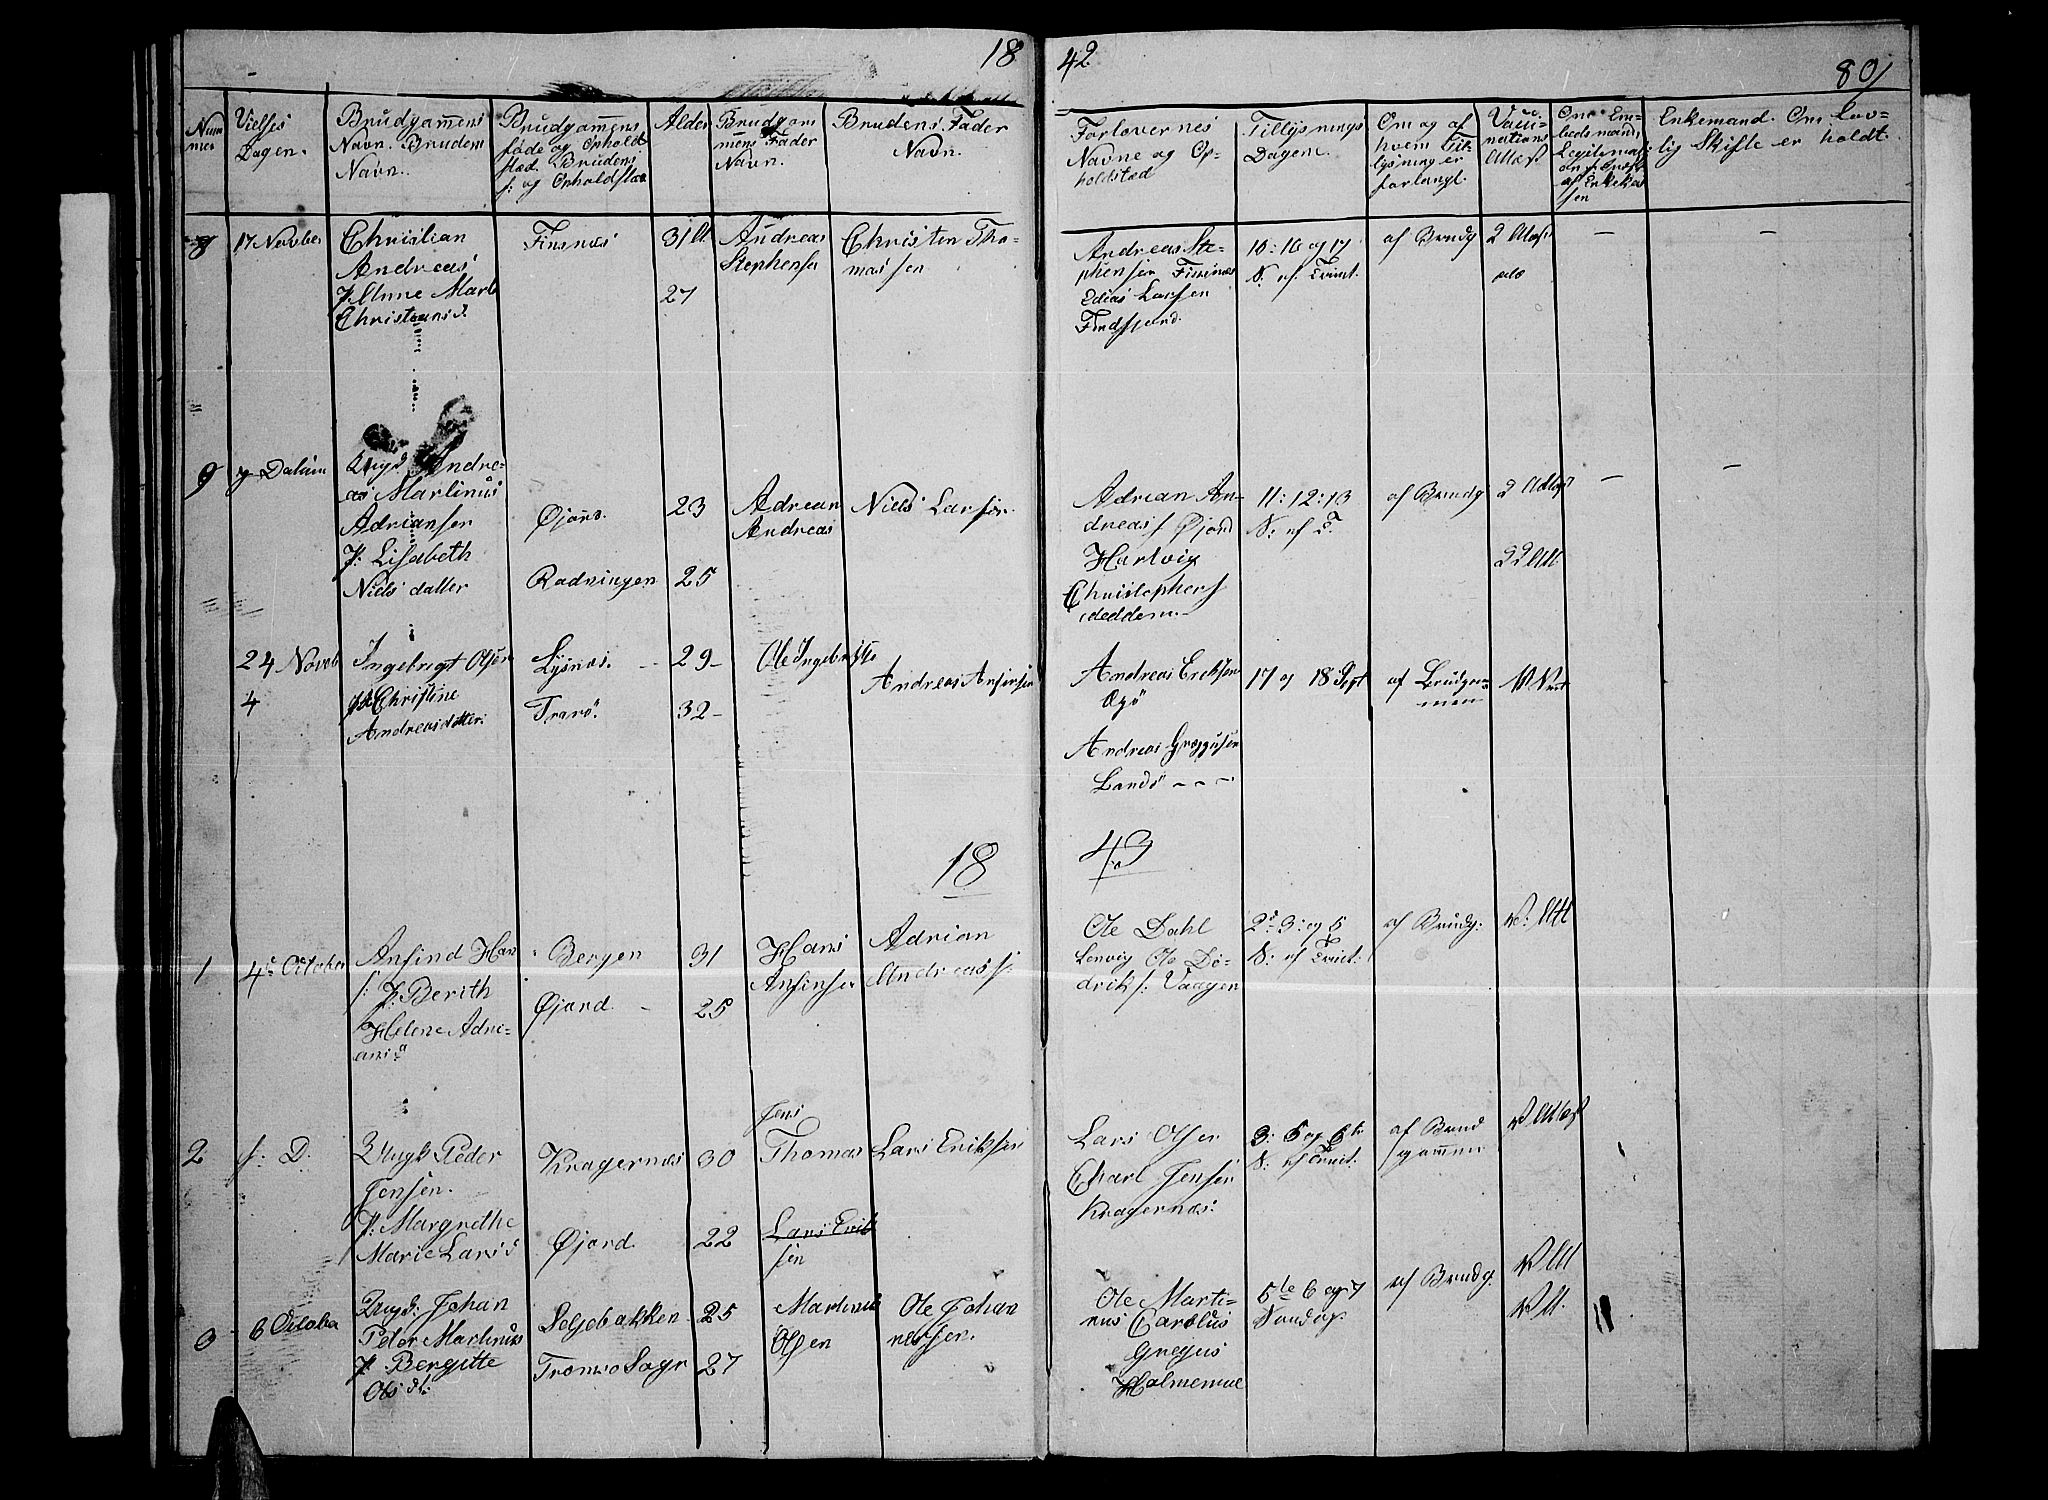 18
42
80/
Num
mer
Vielses
Dagen.
Brudgom̅ens
Navn. Brudens
Navn.
Brudgom̅ens
føde og Ophold
sted. Brudens
f: og Opholdsted
Alder
Brudgom
mens Fader
Navn.
Brudens Fader
Navn.
Forlovernes
Navne og Op-
holdsted
Tillysnings
Dagene.
Om og af
hvem Til-
lysning er
forlangt.
Vacci-
nations
Attest
Enkemand. Om lov-
lig Skifte er holdt.
8
17 Novber
Christian
Andreas
P. Anne Marb
Christiansd.
Finsnæs
31 A
27
Andreas
Stephensen
Christen Tho-
massen
Andreas Ste-
phensen Finsnæs
Edias Larsen
Findfjord.
15: 16 og 17
S: ef. Trinit.
af Brudg
2 Attest
9
Datum
Ungd Andre-
as Martinus
Adriansen
P: Lisabeth
Niels datter
Øjord.
Rødningen
23
25
Adrean
Andreas
Niels Larsen.
Adrian An-
dreas f Øjord
Hartvig
Christophers
ideddem.
11: 12: 13
S: ef T.
af Brudg
2 Attest
24 Novb
4
Ingebrigt Olsen
P Christine
Andreasdatter
Lysnæs.
Tranö.
29
32
Ole Ingebrigts
Andreas Ansinsen
Andreas Eriksen
Øyö
Andreas Greggusen
Sandö
17 og 18 Spt
af Brudgom-
men
18
43
1
4de Octobr
Ansind Han
f: P: Berith
Helene Adri-
ansd
Bergen
Øjord.
31
25
Hans
Ansinsen
Adrian
Andreas f.
Ole Dahl
Lenvig Ole Di-
drik f: Vaagen
2d 3: og 5
S: ef Trinit:
af Brudg:
V: Att
2
f: D.
Ungk Peder
Jensen.
P: Margrethe
Marie Larsd
Kragernæs
Øjord
30
22
Jens
Thomas
Lars Erik
sen
Lars Eriksen
Lars Olsen
Charl Jensen
Kragernæs:
3: 5 og 6te
S: ef Trinit:
af Brud
gom̅en
V Attest
3
6 Octobr
Ungd: Johan
Peter Martinus
P Bergitte
Ols dt:
Seljebakken
Tromsø Sogn
25
27
Martinus
Olsen
Ole Johan
nessen.
Ole Marti-
nus Carolus
Gregus
Holmenvæ
5te 6 og 7
Søndag.
af Brudg.
V Att
V At.